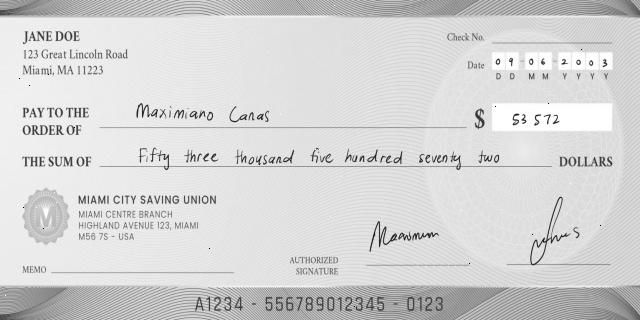 JANE DOE
123 Great Lincoln Road
Miami, MA 11223
Check No.
Date 09 06 2003
D D M M Y Y Y Y
PAY TO THE ORDER OF Maximiano Canas $ 53 572
THE SUM OF Fifty three thousand five hundred seventy two DOLLARS
M
MIAMI CITY SAVING UNION
MIAMI CENTRE BRANCH
HIGHLAND AVENUE 123, MIAMI
M56 7S - USA
MEMO
AUTHORIZED SIGNATURE
A1234 - 556789012345 - 0123